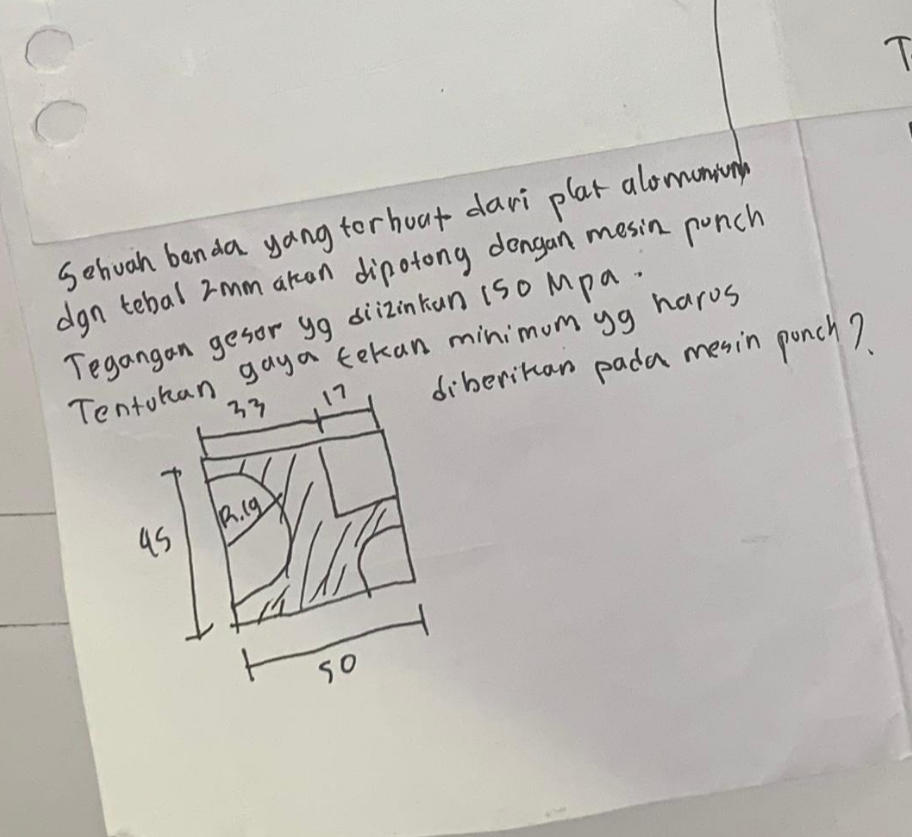 Sebuah benda yang terbuat dari plat alomunium
dgn tebal 2mm akan dipotong dengan mesin punch
Tegangan geser yg diizinkan 150 Mpa.
Tentukan gaya tekan minimum yg harus
diberikan pada mesin punch?
33 17
R.19
45
50